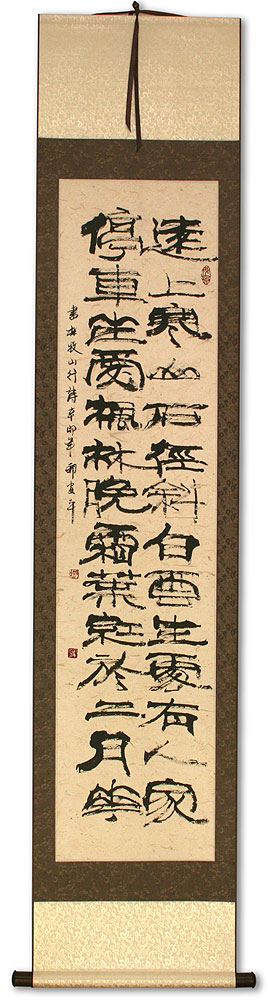 遠上寒山石徑斜白雲生處有人家
停車坐愛楓林晚霜葉紅於二月花
書杜牧山行詩辛卯年